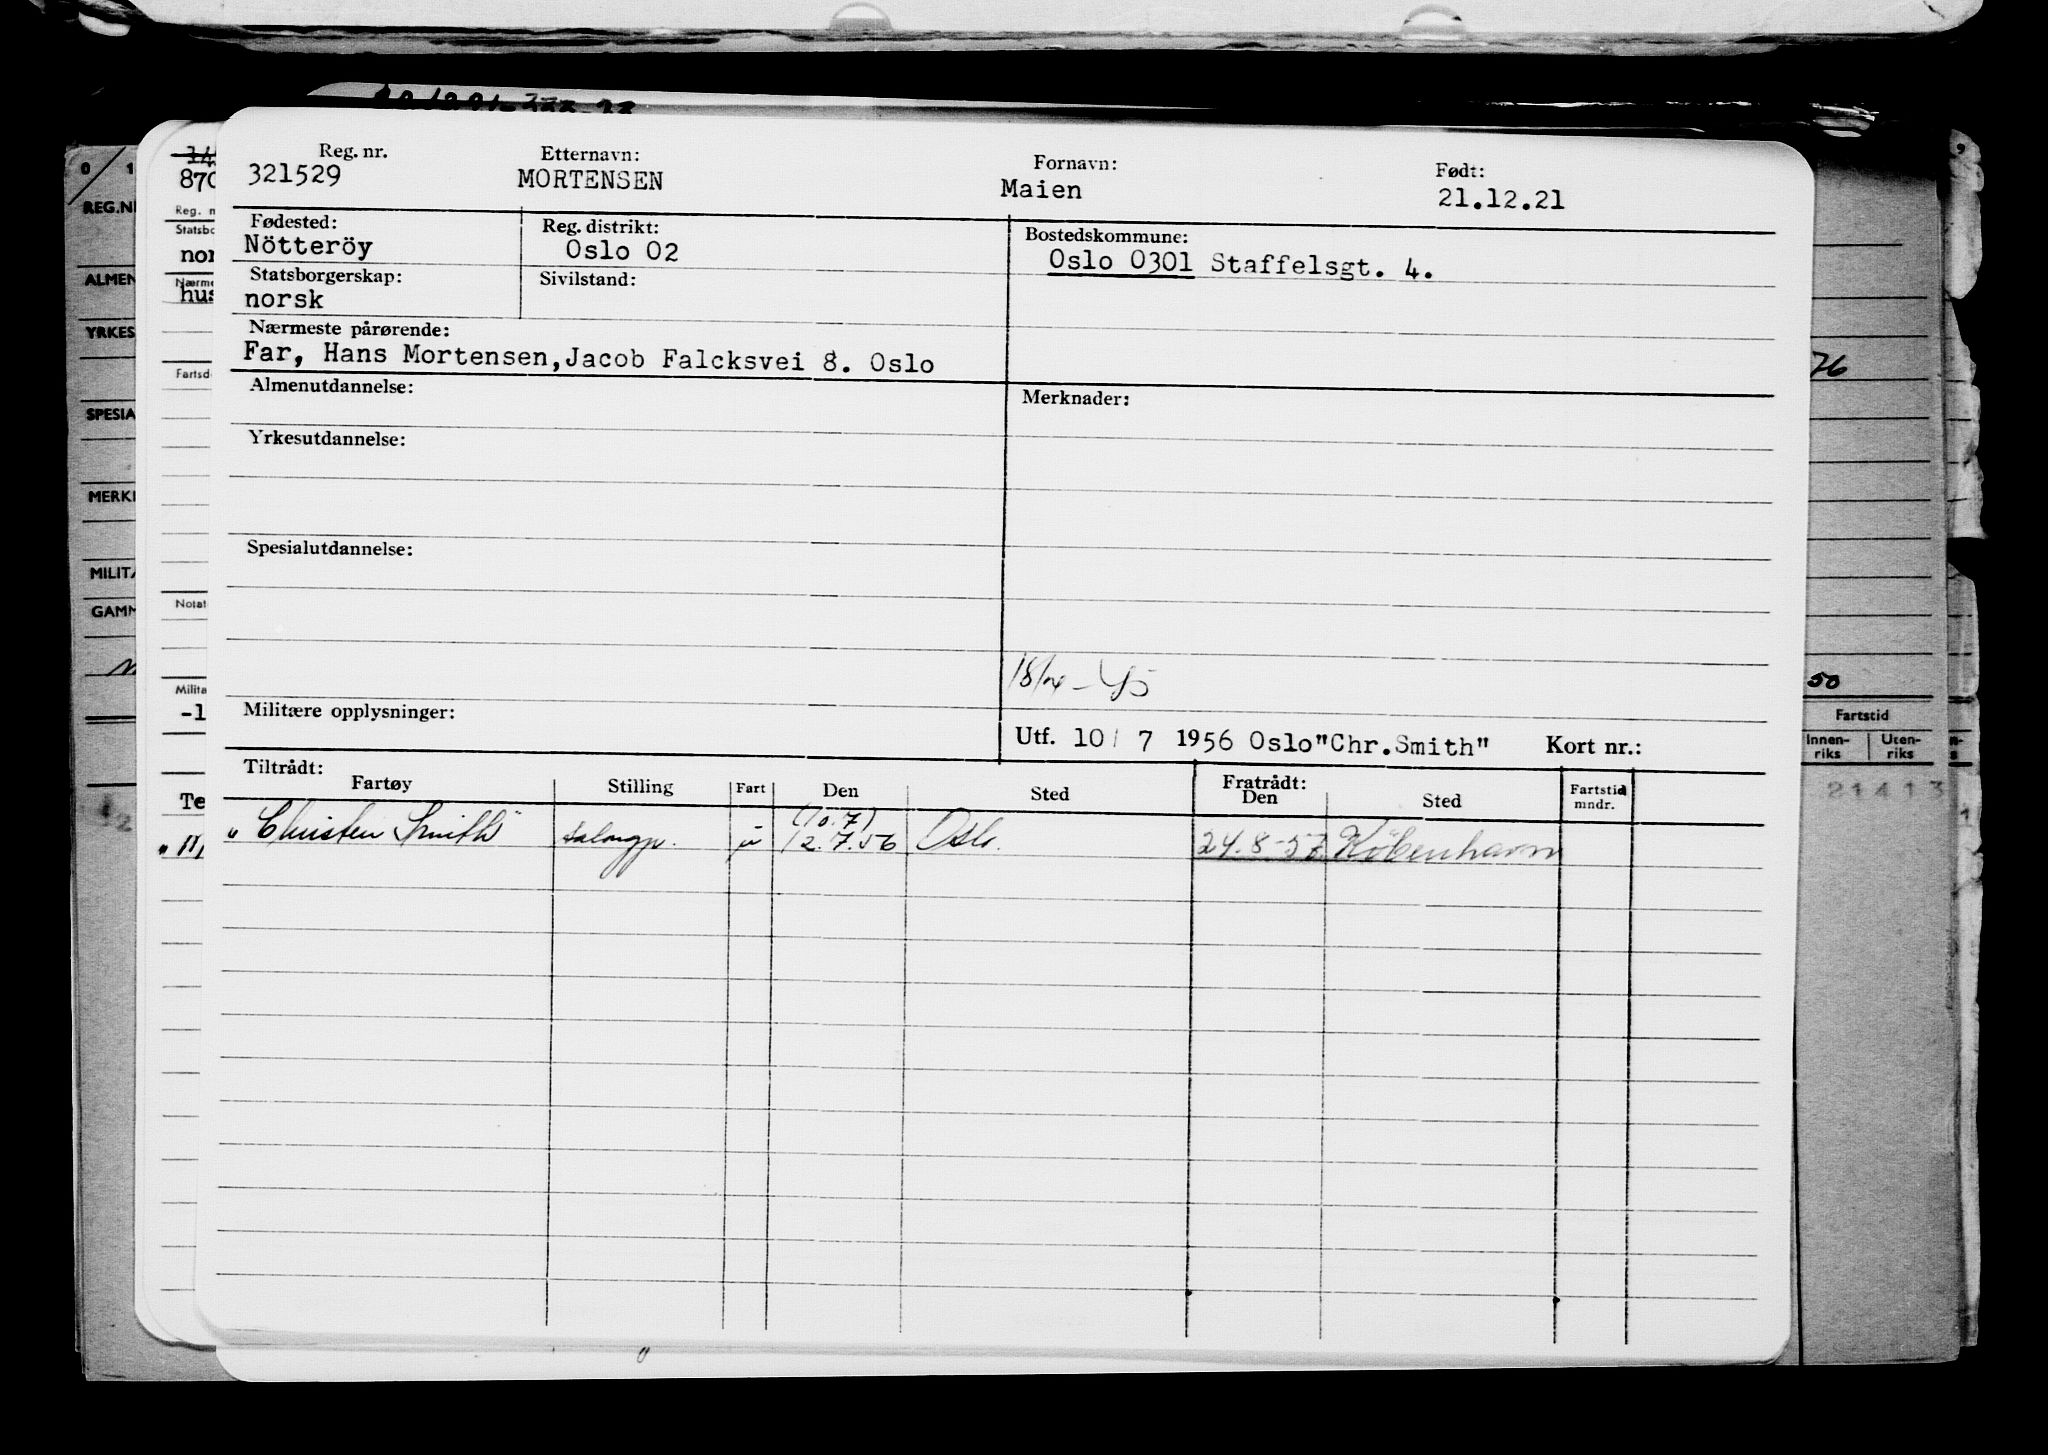 Reg. nr. Etternavn: Fornavn: Født:
321529 MORTENSEN Maien 21.12.21
Fødested: Reg. distrikt: Bostedskommune:
Nötteröy Oslo 02 Oslo 0301 Staffelsgt. 4.
Statsborgerskap: Sivilstand:
norsk
Nærmeste pårørende:
Far, Hans Mortensen, Jacob Falcksvei 8. Oslo
Almenutdannelse: Merknader:
Yrkesutdannelse:
Spesialutdannelse:
Militære opplysninger:
Utf. 10/ 7 1956 Oslo "Chr. Smith" Kort nr.:
Tiltrådt: Fratrådt: Fartstid
Fartøy Stilling Fart Den Sted Den Sted mndr.
(10.7)
"Christen Smith" salongp. u 12.7.56 Oslo. 24.8-57 København
0 1
870
REG.NR
Reg. n
Statsbo
nor
ALMEN
Nærme
hus
YRKES
Fartsd
SPESIA
MERKN
MILITÆ
Notat
GAMM
Milita
-1
Te
76
50
Fartstid
Innen-riks Uten-riks
21413
9